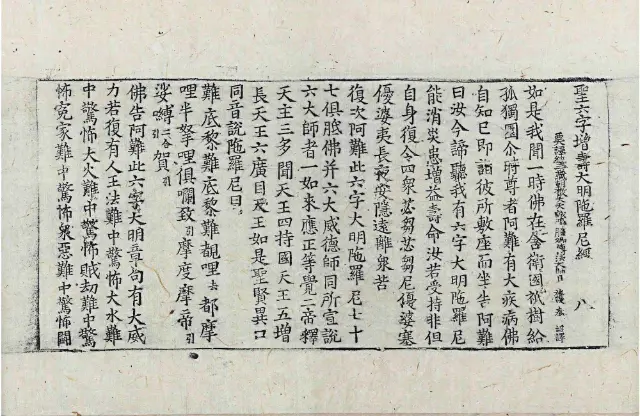 聖六字增壽大明陁羅尼經 八
如是我聞一時佛在舍衛國祇樹給
孤獨園尒時尊者阿難有大疾病佛
自知已即詣彼所敷座而坐告阿難
曰汝今諦聽我有六字大明陁羅尼
能消災患增益壽命汝若受持非但
自身復令四衆苾芻苾芻尼優婆塞
優婆夷長夜安隱遠離衆苦
復次阿難此六字大明陁羅尼七十
七俱胝佛并六大威德師同所宣說
六大師者一如來應正等覺二帝釋
天主三多聞天王四持國天王五增
長天王六廣目天王如是聖賢異口
同音說陁羅尼曰
難底黎難底黎難覩哩去 都摩
哩半拏哩俱囒致引摩度摩帝引
娑嚩二合賀引
佛告阿難此六字大明章句有大威
力若復有人王法難中驚怖大水難
中驚怖大火難中驚怖賊劫難中驚
怖寃家難中驚怖衆惡難中驚怖鬭